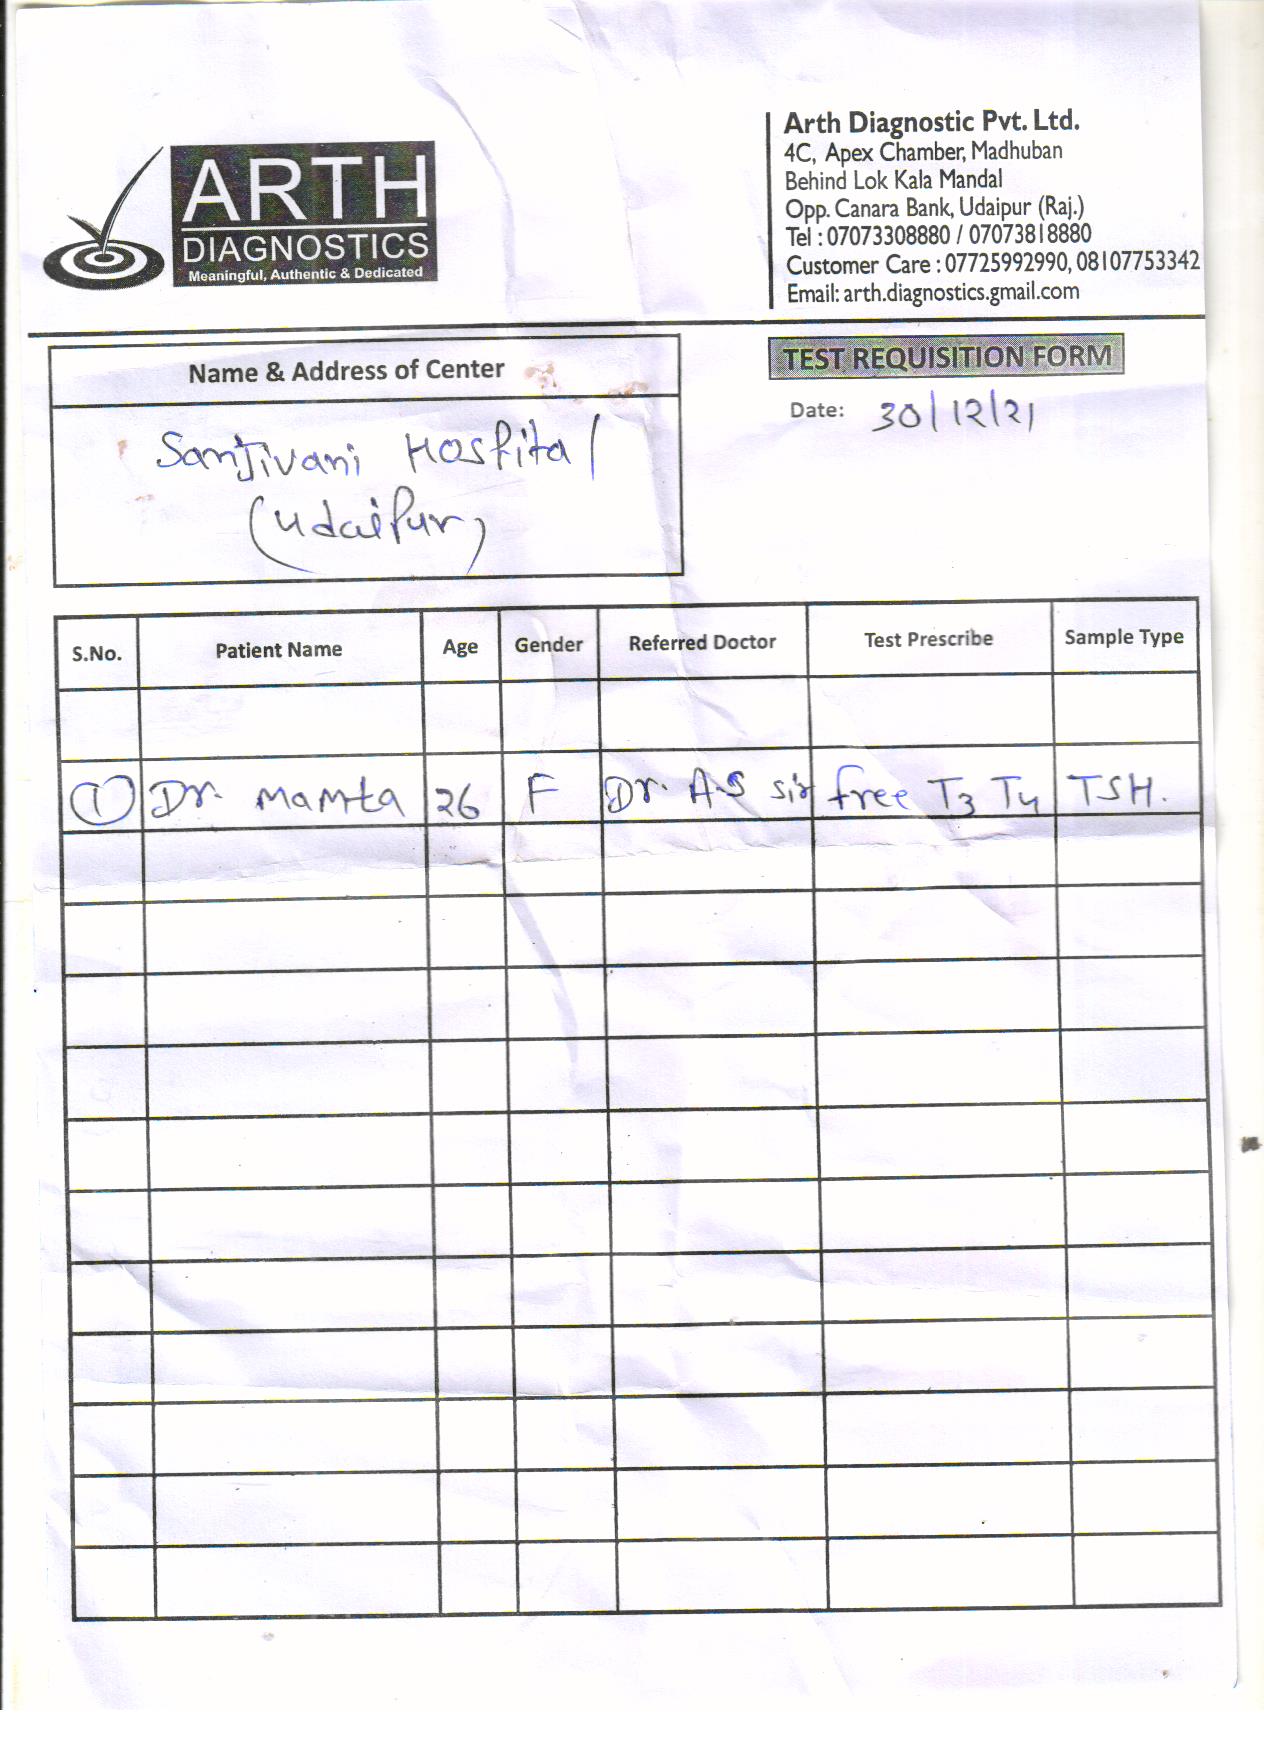 ARTH
DIAGNOSTICS
Meaningful, Authentic & Dedicated
Arth Diagnostic Pvt. Ltd.
4C, Apex Chamber, Madhuban
Behind Lok Kala Mandal
Opp. Canara Bank, Udaipur (Raj.)
Tel : 07073308880 / 07073818880
Customer Care : 07725992990, 08107753342
Email: arth.diagnostics.gmail.com
Name & Address of Center
Sanjivani Hospital
(Udaipur)
TEST REQUISITION FORM
Date: 30/12/21
S.No. Patient Name Age Gender Referred Doctor Test Prescribe Sample Type
1 Dr. Mamta 26 F Dr. A.S sir free T3 T4 TSH.